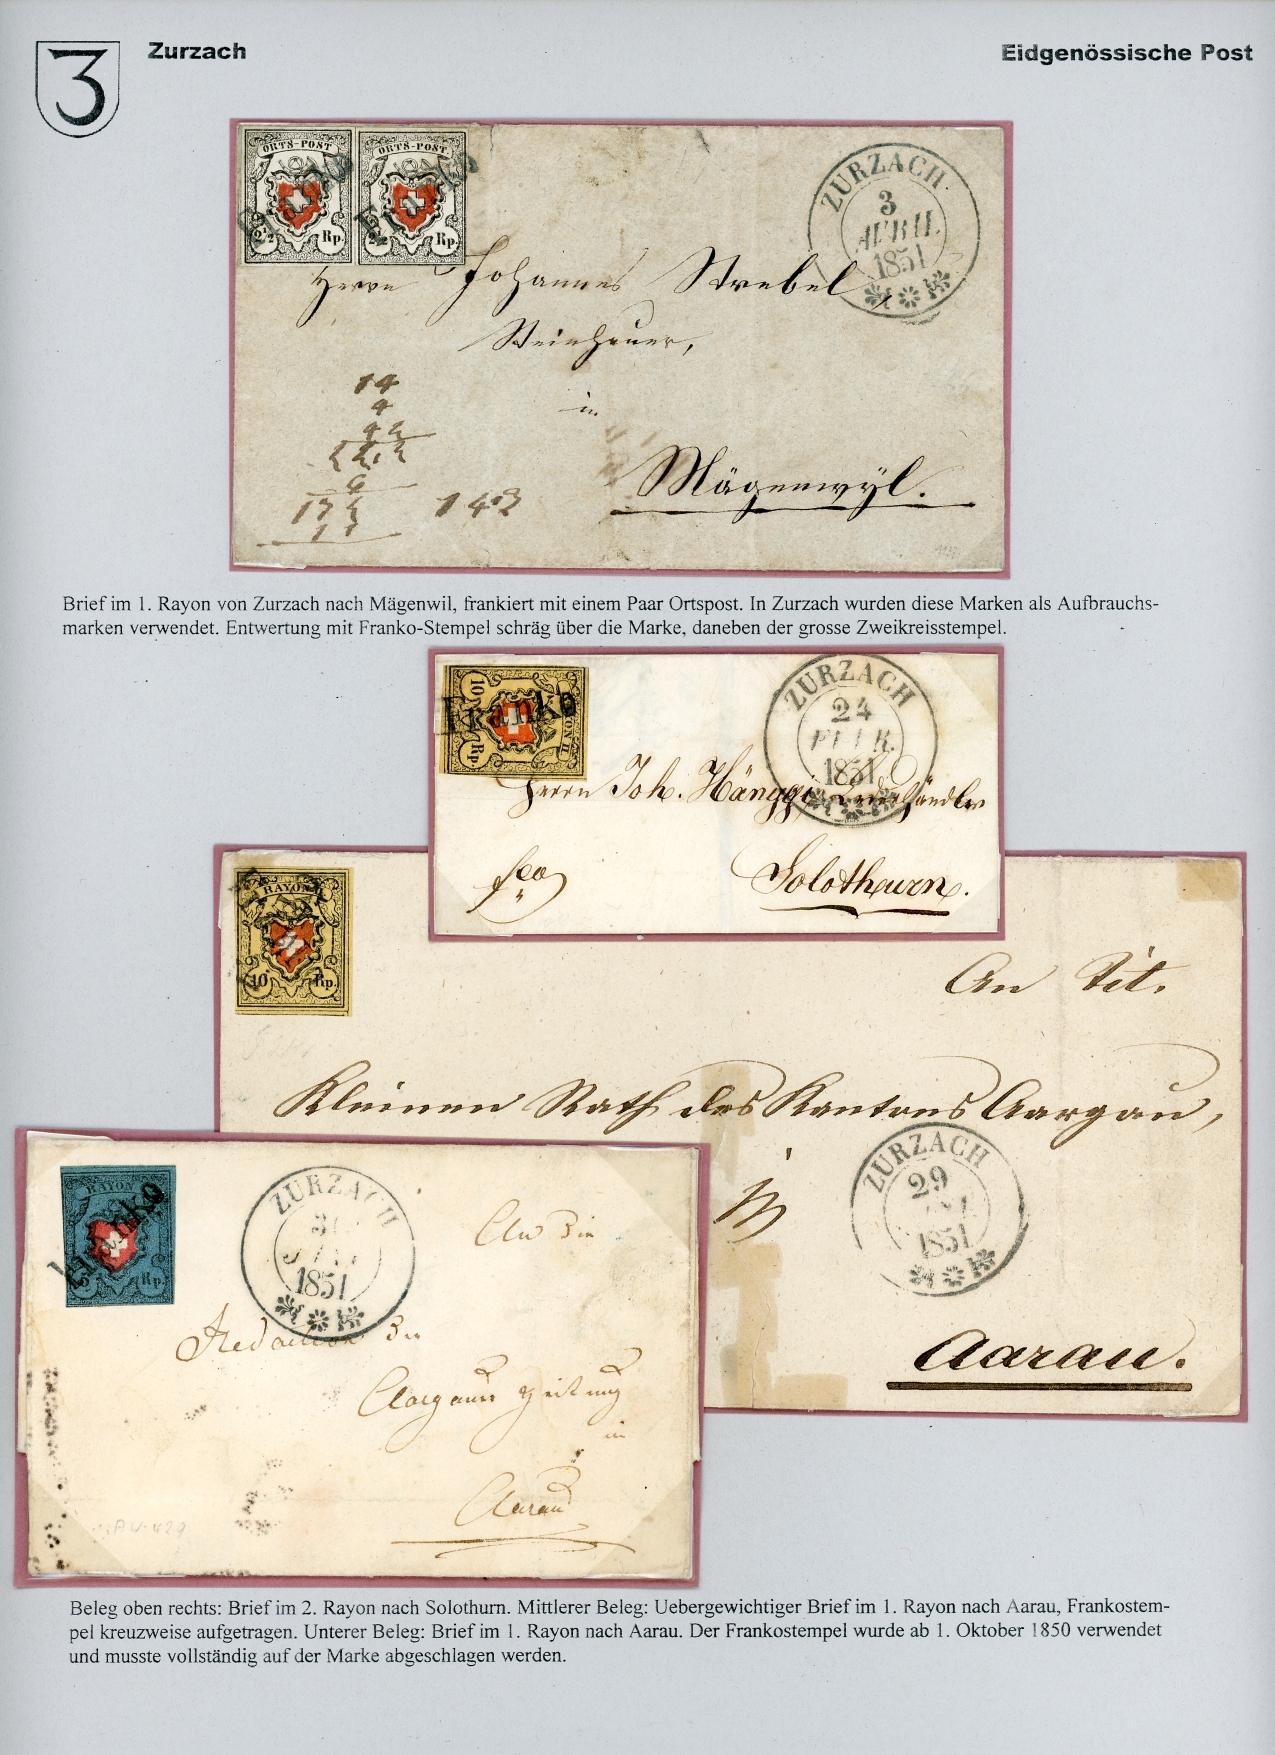 3
Zurzach
Eidgenössische Post
ORTS-POST
ORTS-POST
Franko
Franko
2½ Rp.
2½ Rp.
ZURZACH
3
AVRIL
1851
Herrn Johannes Strebel,
Steinhauer,
in
Mägenwyl.
14
4
Brief im 1. Rayon von Zurzach nach Mägenwil, frankiert mit einem Paar Ortspost. In Zurzach wurden diese Marken als Aufbrauchs-
marken verwendet. Entwertung mit Franko-Stempel schräg über die Marke, daneben der grosse Zweikreisstempel.
10 Rp.
RAYON II
Franko
ZURZACH
24
FEBR.
1851
Herrn Joh. Hänggi Lederhändler
fco
Solothurn.
RAYON II
10 Rp.
An Tit.
Kleinen Rath des Kantons Aargau,
ZURZACH
29
1851
Aarau.
RAYON
Franko
5 Rp.
ZURZACH
1851
An die
Redaction der
Aargauer Zeitung
in
Aarau
Beleg oben rechts: Brief im 2. Rayon nach Solothurn. Mittlerer Beleg: Uebergewichtiger Brief im 1. Rayon nach Aarau, Frankostem-
pel kreuzweise aufgetragen. Unterer Beleg: Brief im 1. Rayon nach Aarau. Der Frankostempel wurde ab 1. Oktober 1850 verwendet
und musste vollständig auf der Marke abgeschlagen werden.